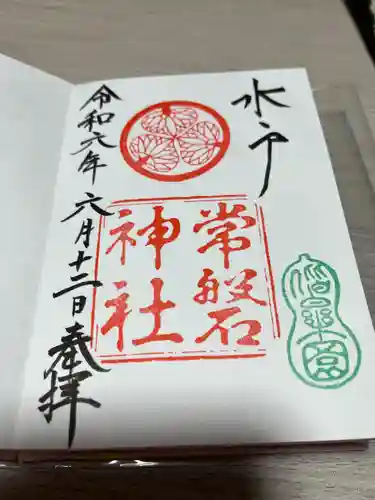 水戸
常磐
神社
令和元年六月十二日奉拝